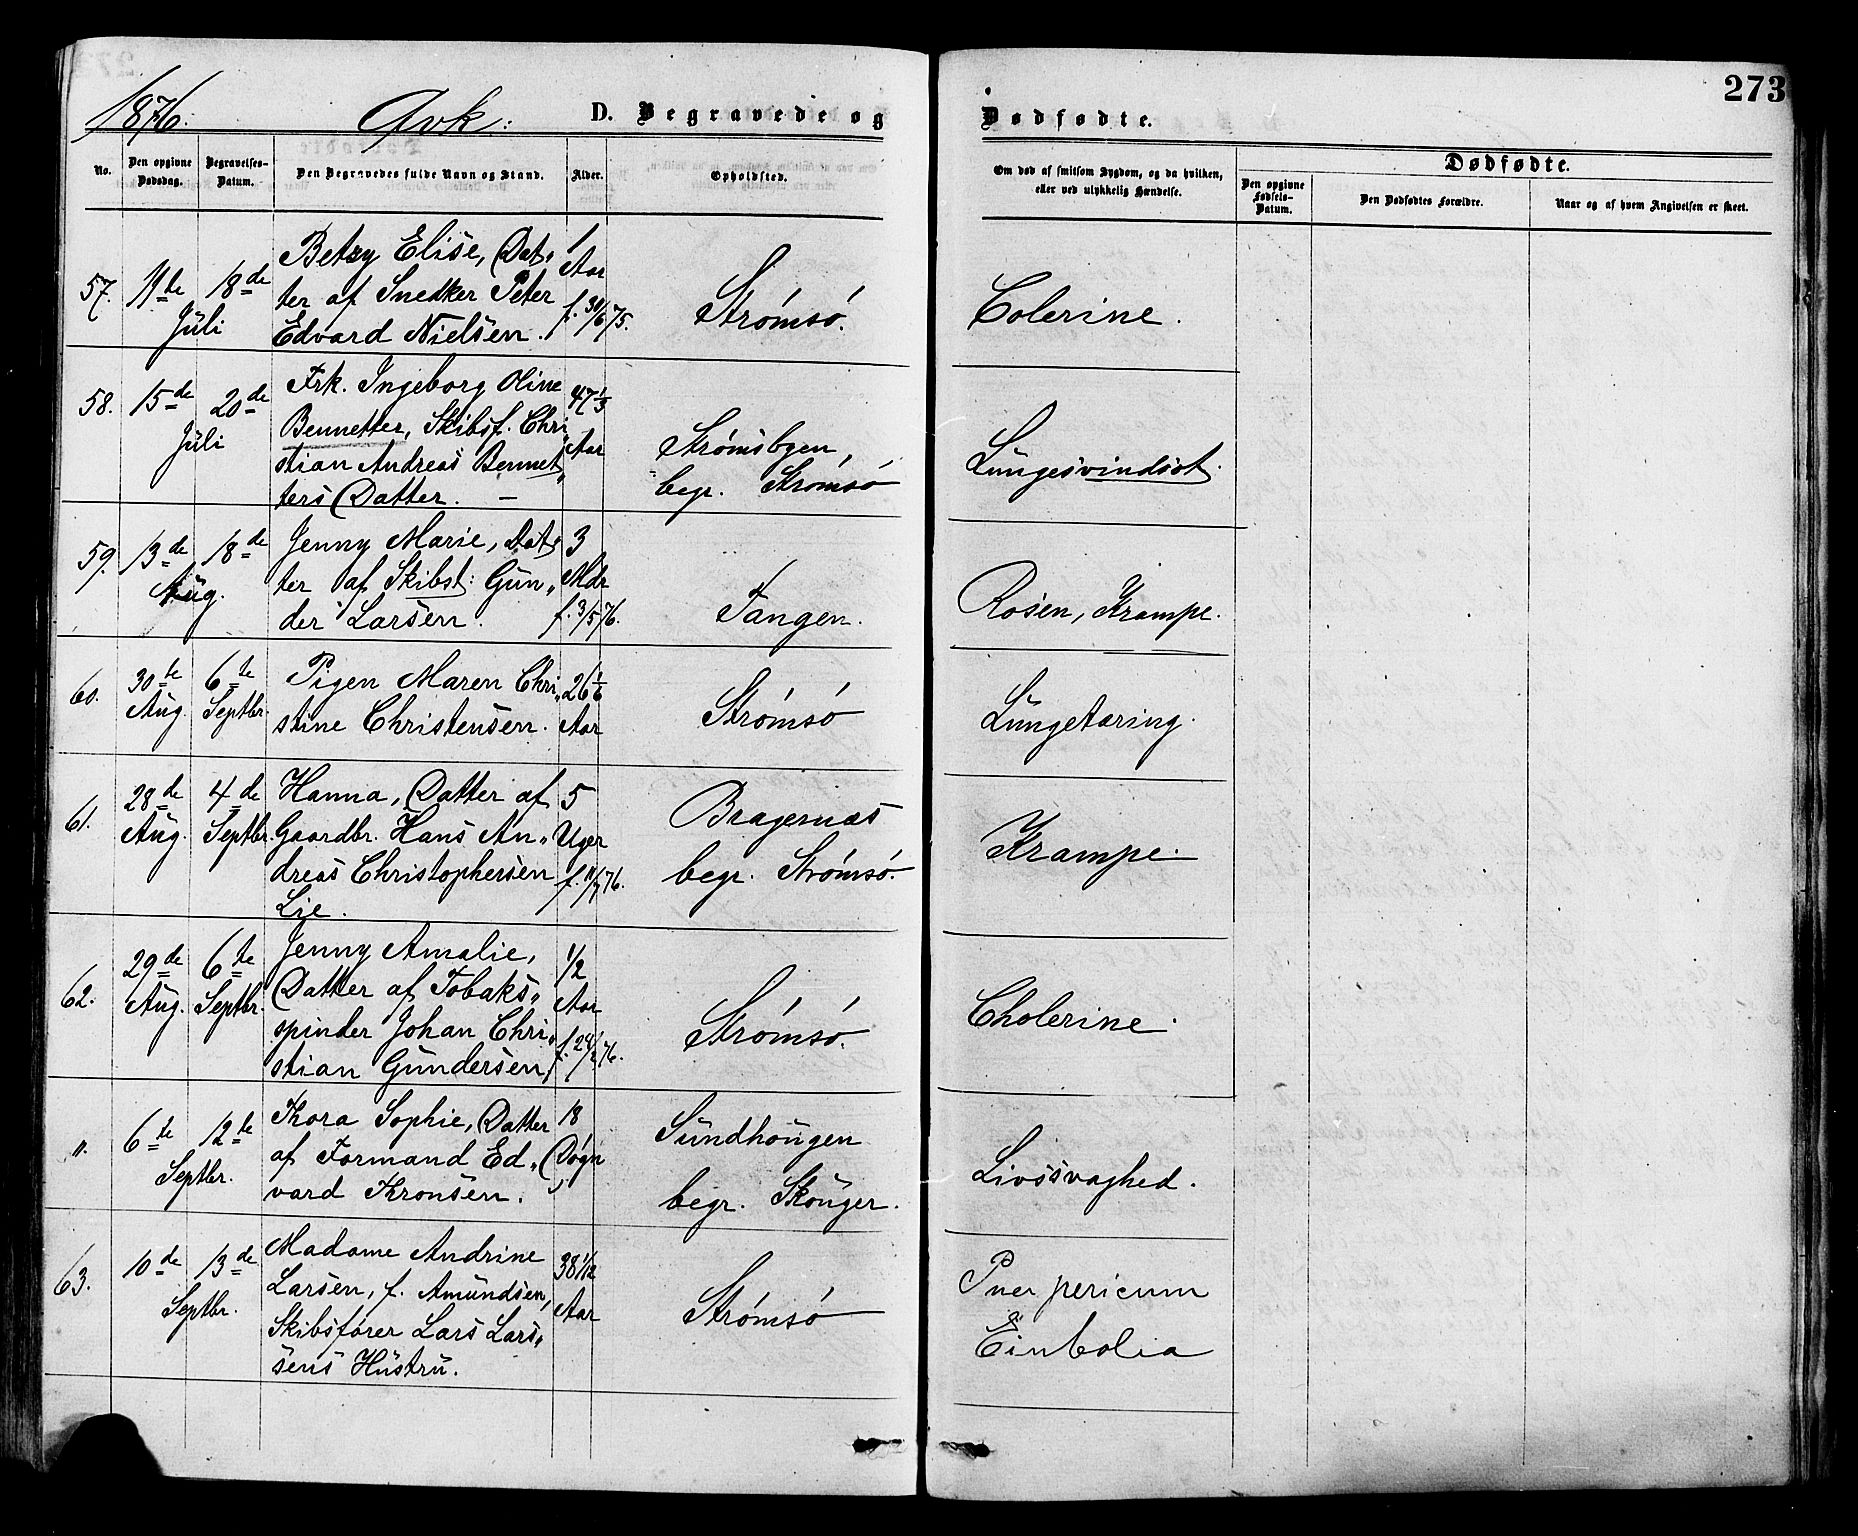 273
1876. Qvk: D. Begravede og Dødfødte.
No.
Den opgivne Dødsdag.
Begravelses-Datum.
Den Begravedes fulde Navn og Stand.
Alder.
Opholdsted.
Om død af smitsom Sygdom, og da hvilken,
eller ved ulykkelig Hændelse.
Dødfødte.
Den opgivne Fødsels-Datum.
Den Dødfødtes Forældre.
Naar og af hvem Angivelsen er skeet.
57. 11te 18de
Juli
Betzy Elise, Dat„
ter af Snedker Peter
Edvard Nielsen.
1
Aar
f. 30/6 75.
Strømsø.
Colerine.
58. 15de 20de
Juli
Frk. Ingeborg Oline
Bennetter, Skibsf. Chri„
stian Andreas Bennet„
ters Datter. —
47 1/3
Aar
Strømsbyen,
begr. Strømsø
Lungesvindsot.
59. 13de 18de
Aug.
Jenny Marie, Dat„
ter af Skibst: Gun„
der Larsen.
3
Mdr
f. 3/5 76.
Tangen.
Rosen, Krampe.
60. 30te Aug. 6te Septbr.
Pigen Maren Chri„
stine Christensen.
26 1/6
Aar
Strømsø
Lungetæring.
61. 28de Aug. 4de Septbr.
Hanna, Datter af
Gaardbr. Hans An„
dreas Christophersen
Lie.
5
Uger
f. 11/7 76.
Bragernæs
begr. Strømsø.
Krampe.
62. 29de Aug. 6te Septbr.
Jenny Amalie,
Datter af Tobaks„
spinder Johan Chri„
stian Gundersen,
1/2
Aar
f. 24/2 76.
Strømsø.
Cholerine.
„. 6te 12te
Septbr.
Thora Sophie, Datter
af Formand Ed„
vard Thronsen.
18
Døgn
Sundhougen
begr. Skouger.
Livssvaghed.
63. 10de 13de
Septbr.
Madame Andrine
Larsen, f. Amundsen,
Skibsfører Lars Lars„
sens Hustru.
38 1/12
Aar
Strømsø
Puer pericum
&
Eimbolia